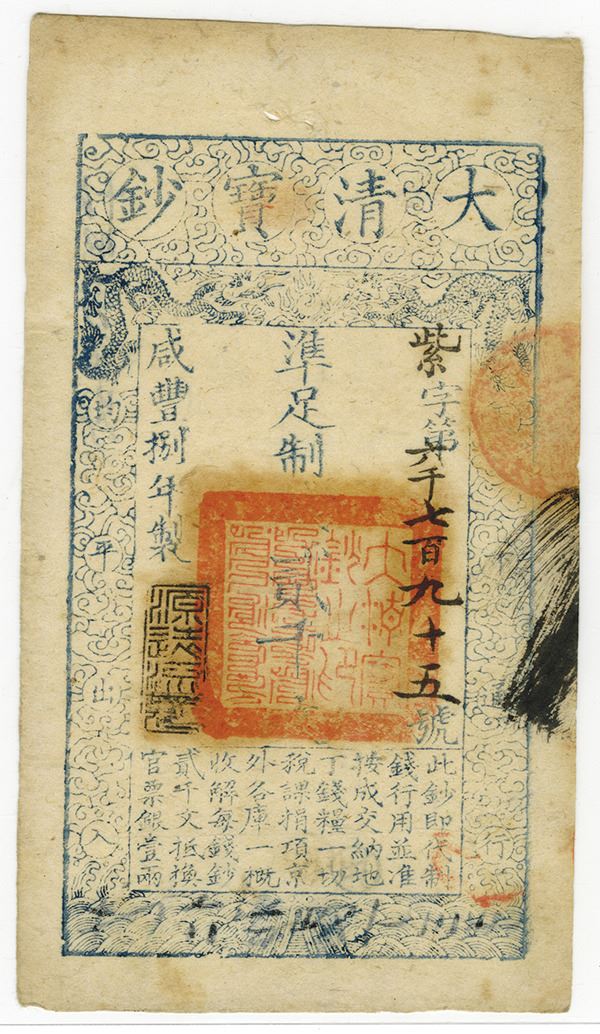 大清寶鈔
紫字第六千七百九十五號
準足制
貳千
咸豐捌年製
通行
均平出入
此鈔即代制
錢行用並准
按成交納地
丁錢糧一切
稅課捐項京
外各庫一概
收解每錢鈔
貳千文抵換
官票銀壹兩